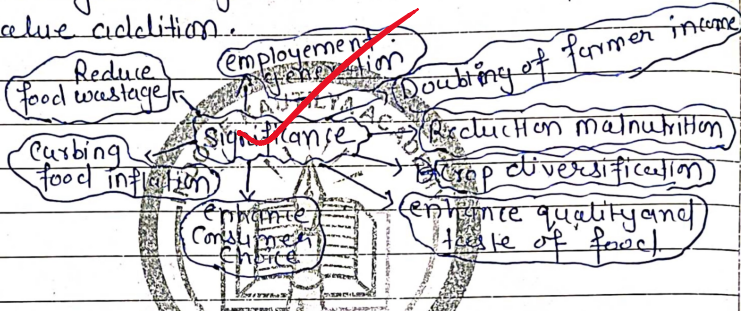 alue addition.
employement
generation
Doubling of farmer income
Reduce
food wastage
Significance
Reduction malnutrition
Curbing
food inflation
Crop diversification
enhance
Consumer
Choice
enhance quality and
taste of food.